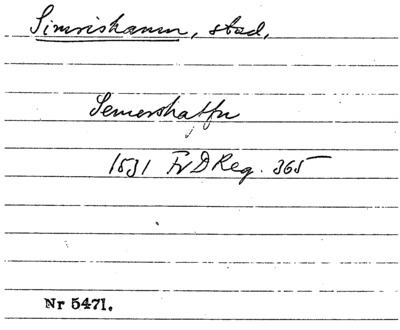 Simrishamn, stad,
Semershaffn
1531 Fr D Reg. 365
Nr 5471.